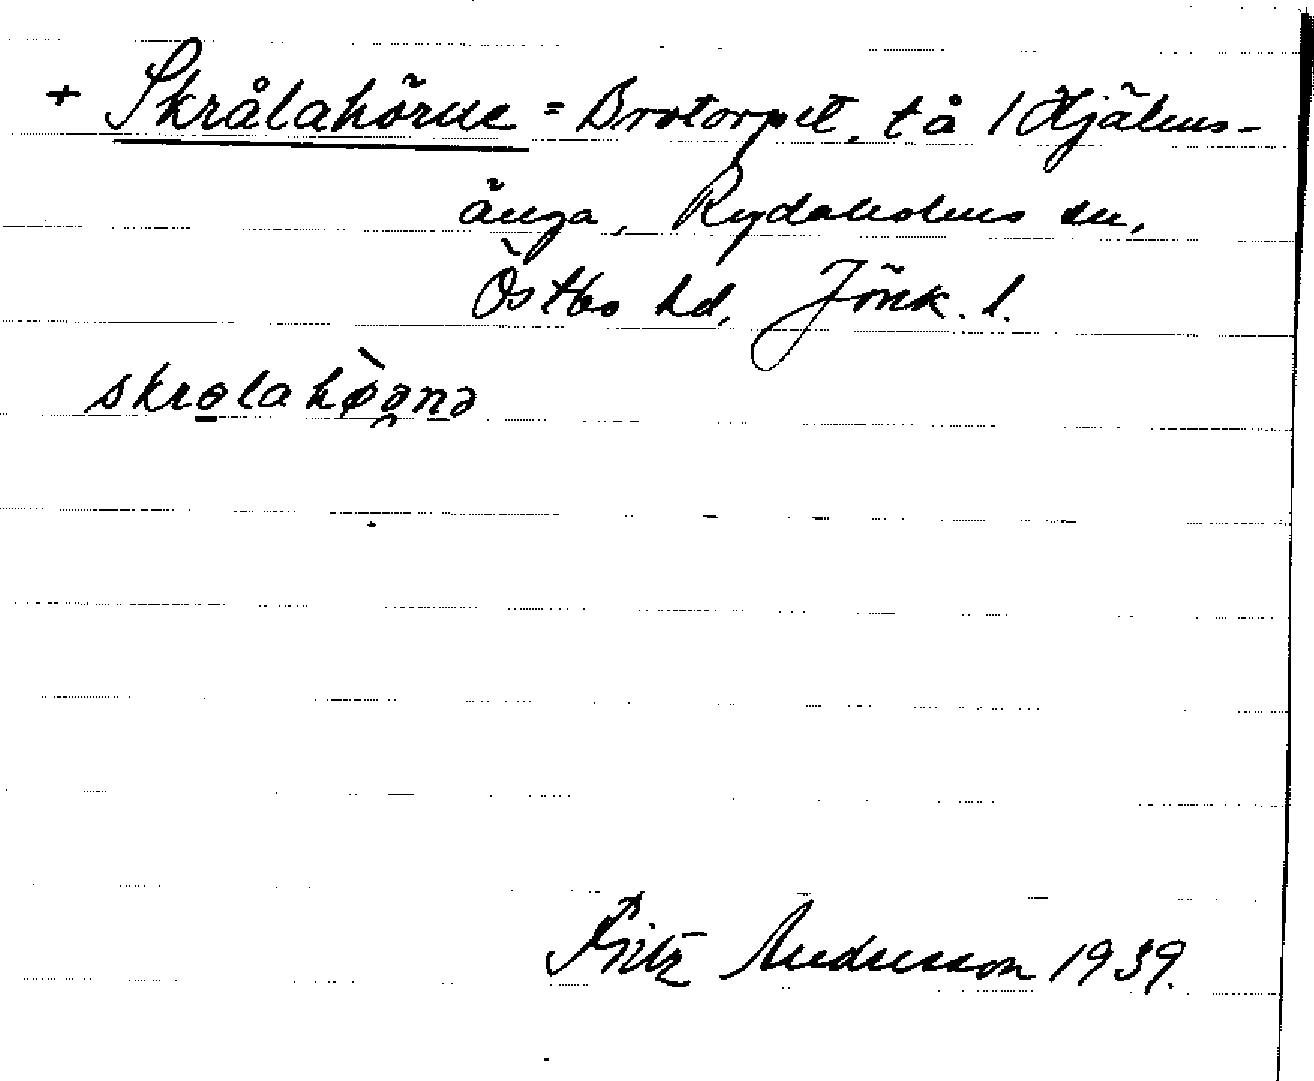 + Skrålahörne = Brotorpet, t å 1 Hjälms-
änga, Rydaholms sn,
Östbo hd, Jönk. l.
skrolahøənə
Fritz Andersson 1939.